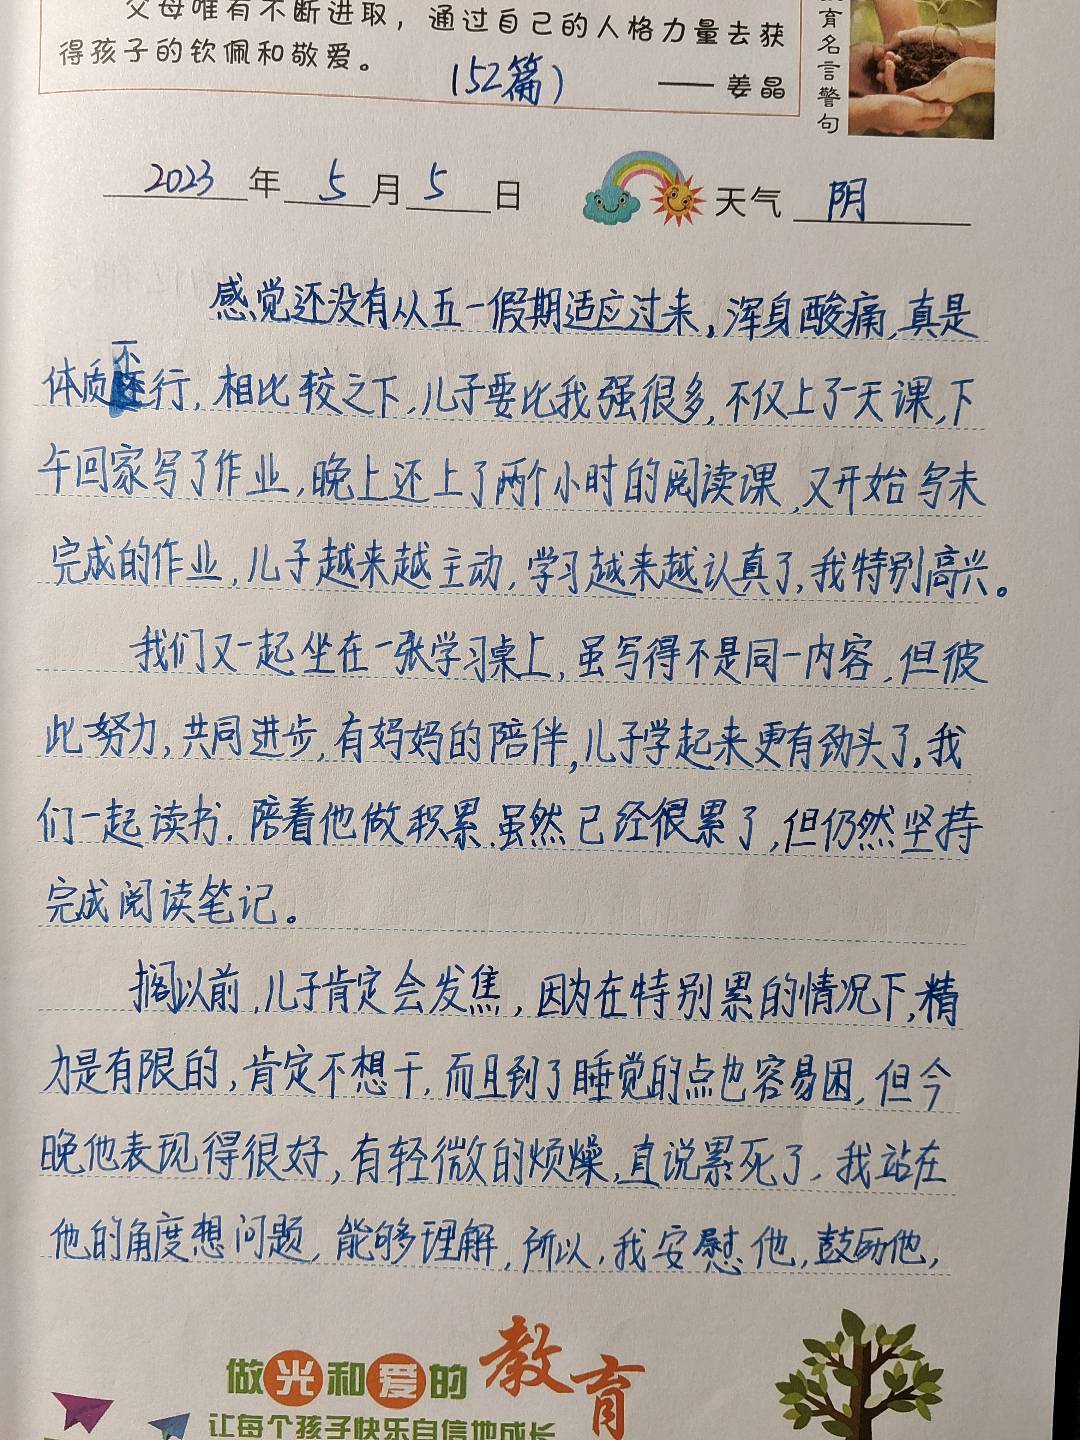 父母唯有不断进取，通过自己的人格力量去获
得孩子的钦佩和敬爱。
（52篇）
—— 姜晶
育名言警句
2023年5月5日 天气 阴
感觉还没有从五一假期适应过来，浑身酸痛，真是
体质不行，相比较之下，儿子要比我强很多，不仅上了一天课，下
午回家写了作业，晚上还上了两个小时的阅读课，又开始写未
完成的作业，儿子越来越主动，学习越来越认真了，我特别高兴。
我们又一起坐在一张学习桌上，虽写得不是同一内容，但彼
此努力，共同进步，有妈妈的陪伴，儿子学起来更有劲头了，我
们一起读书，陪着他做积累，虽然已经很累了，但仍然坚持
完成阅读笔记。
搁以前，儿子肯定会发焦，因为在特别累的情况下，精
力是有限的，肯定不想干，而且到了睡觉的点也容易困，但今
晚他表现得很好，有轻微的烦燥，直说累死了，我站在
他的角度想问题，能够理解，所以，我安慰他，鼓励他，
做光和爱的教育
让每个孩子快乐自信地成长